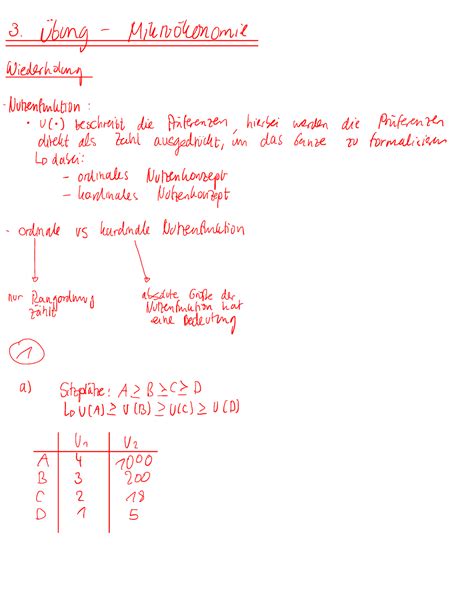 3. Übung - Mikroökonomie
Wiederholung
- Nutzenfunktion:
• U(•) beschreibt die Präferenzen, hierbei werden die Präferenzen
direkt als Zahl ausgedrückt, um das Ganze zu formalisieren
↳ dabei:
- ordinales Nutzenkonzept
- kardinales Nutzenkonzept
- ordinale vs kardinale Nutzenfunktion
nur Rangordnung
zählt
absolute Größe der
Nutzenfunktion hat
eine Bedeutung
1
a) Sitzplätze: A ≥ B ≥ C ≥ D
↳ U(A) ≥ U(B) ≥ U(C) ≥ U(D)
U1 U2
A 4 1000
B 3 200
C 2 18
D 1 5